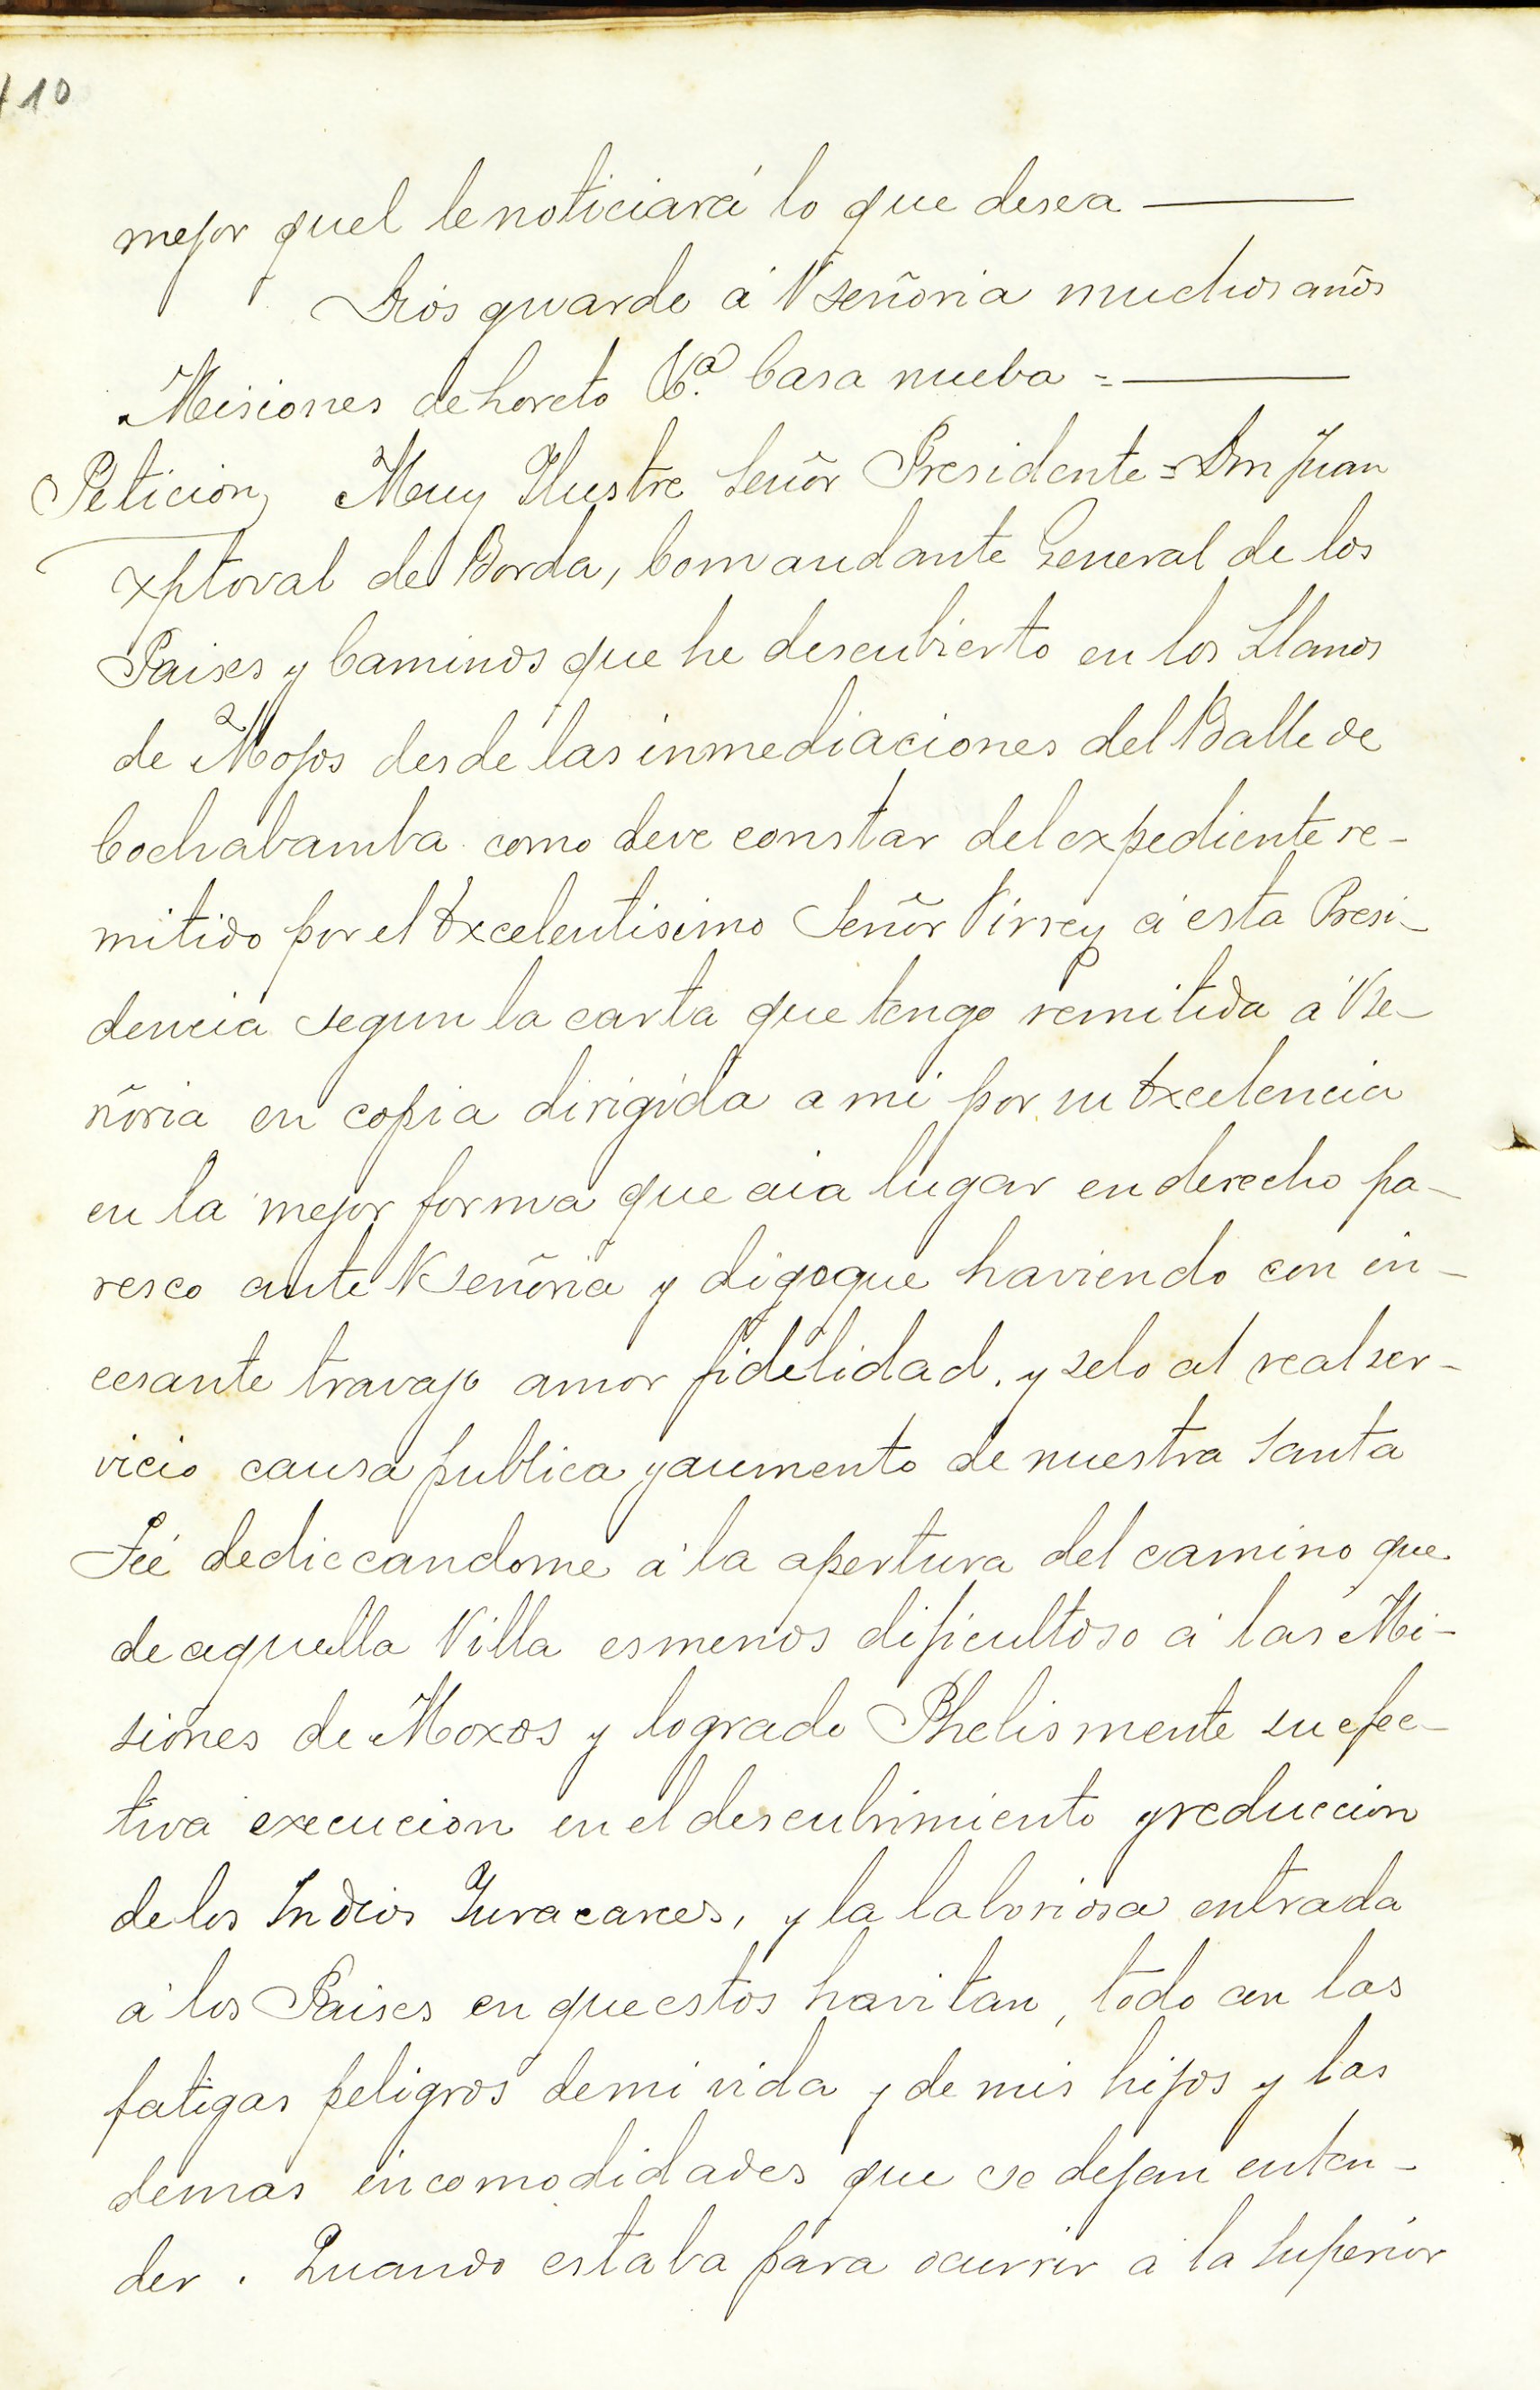 110
mejor quel le noticiará lo que desea
Dios guarde á Vseñoria muchos años
Misiones de Loreto Va. Casa nueba =
Peticion Muy Ilustre Señor Presidente = Dn Juan
Xptoval de Borda, Comandante General de los
Paises y Caminos que he descubierto en los Llanos
de Mojos desde las inmediaciones del Balle de
Cochabamba como deve constar del expediente re-
mitido por el Excelentisimo Señor Virrey á esta Presi-
dencia segun la carta que tengo remitida á Vse-
ñoria en copia dirigida a mi por su Excelencia
en la mejor forma que aia lugar en derecho pa-
resco ante Vseñoria y digo que haviendo con in-
cesante travajo amor fidelidad. y selo al real ser-
vicio causa publica y aumento de nuestra Santa
Feé dediccandome á la apertura del camino que
de aquella Villa es menos dificultoso á las Mi-
siones de Moxos y logrado Phelismente su efec-
tiva execucion en el descubrimiento y reduccion
de los Indios Yuracarees, y la laboriosa entrada
á los Paises en que estos havitan, todo con las
fatigas peligros de mi vida y de mis hijos y las
demas incomodidades que se dejan enten-
der. Quando estaba para ocurrir á la Superior